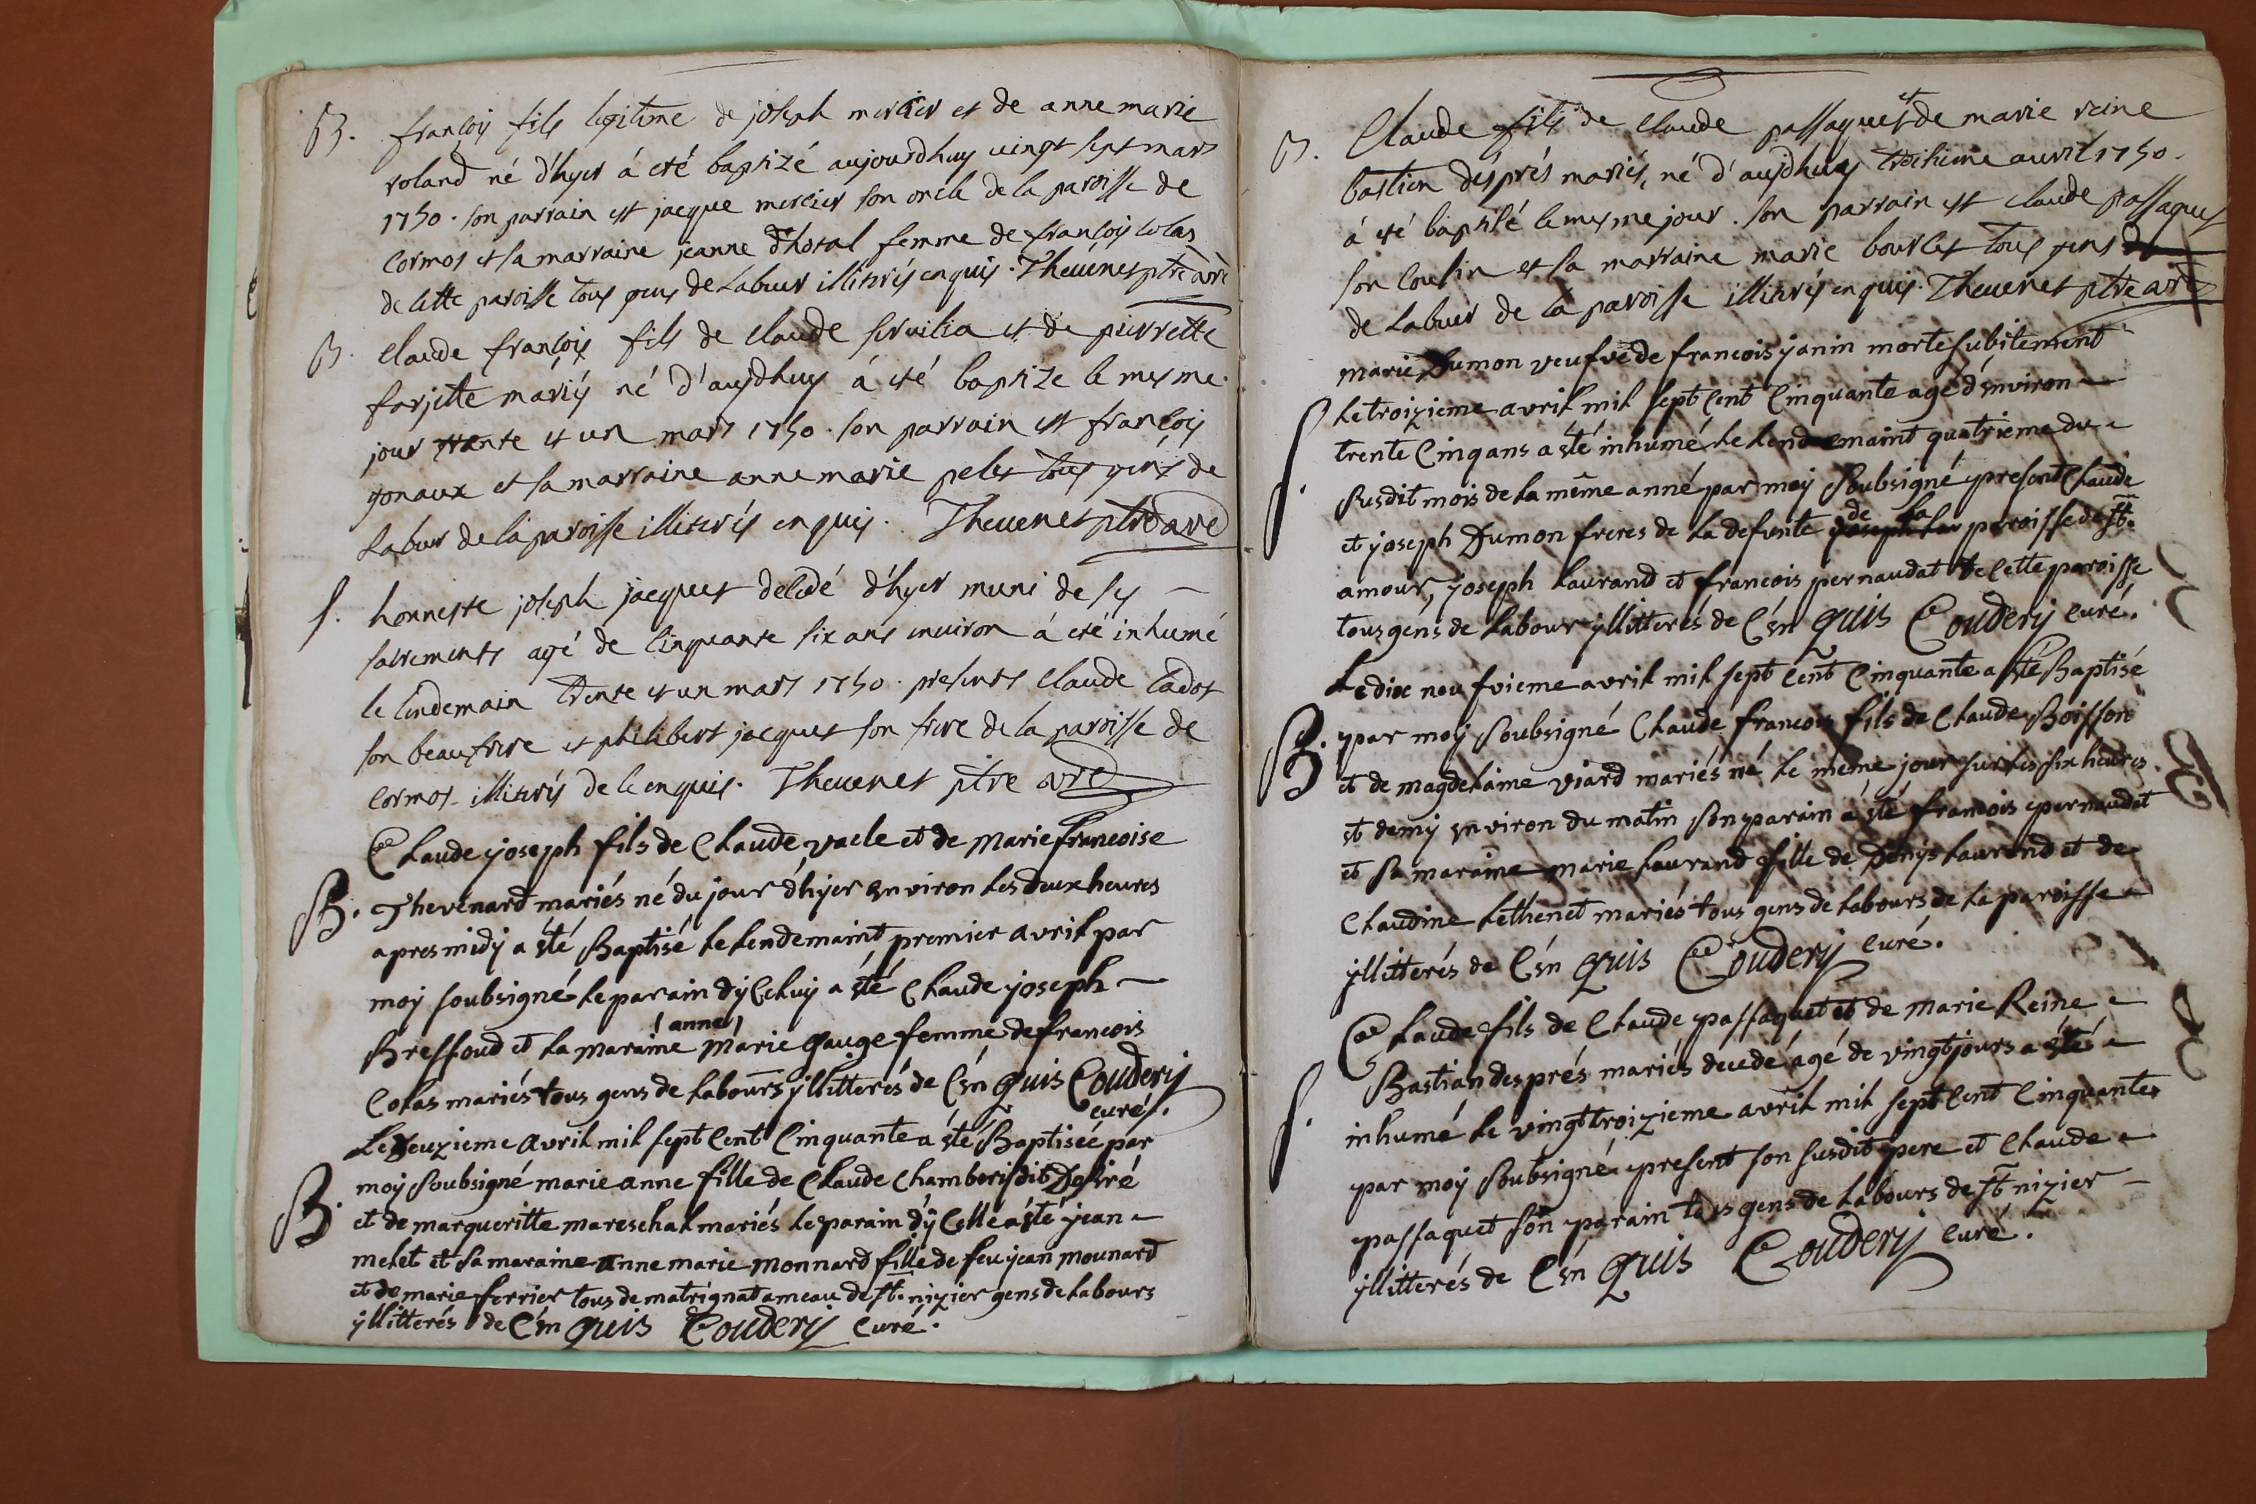 B. françois fils legitime de joseph mercier et de anne marie
roland né d'hyer á eté baptizé aujourdhuy vingt sept mars
1750. son parrain est jacque mercier son oncle de la paroisse de
cormos et la marraine jeanne d'hotal femme de françois colas
de cette paroisse tous gens de Labeur illiterés enquis. Thevenet ptre
B. Claude françois fils de Claude servilia et de pierrette
farjette mariés né d'aujdhuy á eté baptize le mesme
jour trente et un mars 1750. son parrain est françois
gonaux et sa marraine anne marie pelet tous gens de
Labeur de la paroisse illiterés enquis. Thevenet ptre
S. honneste joseph jacquet decedé d'hyer muni de sy
sacrements agé de cinquante six ans environ á eté inhumé
le lendemain trente et un mars 1750. presents Claude Cadot
son beaufrere et philibert jacquet son frere de la paroisse de
Cormos illiterés de ce enquis. Thevenet ptre
Claude joseph fils de Claude vacle et de Marie francoise
B. Thevenard mariés né du jour d'hyer environ les deux heures
apres midy a êté Baptisé le lendemaint premier avril par
moy soubsigné le parain d'ÿ Celuy a êté Claude joseph
Bressoud et la maraine marie anne gauge femme de francois
Colas mariés tous gens de labours ÿllitterés de C'en quis Coudery
curé.
Le Deuzieme avril mil sept Cent Cinquante a êté Baptiseé par
moy soubsigné marie anne fille de Claude Chambery dit Desiré
B. et de margueritte mareschal mariés le parain d'ÿ Celle a êté jean
melet et sa maraine anne marie monnard fille de feu jean mounard
et de marie ferrier tous de matrignat ameau de st. nizier gens de labours
ÿllitterés de C'en quis Coudery curé.
B. Claude fils de Claude passaquet et de marie reine
bastien désprés mariés, né d'aujdhuy troisieme avril 1750.
á eté baptisé le mesme jour. son parrain est claude passaquet
son cousin et sa marraine marie bourlet tous gens
de Labeur de la paroisse illiterés enquis. Thevenet ptre
marie Dumon veufve de francois janin morte subitement
S. le troizieme avril mil sept Cent Cinquante age d'environ
trente Cinq ans a êté inhumé le lendemaint quatrieme du
susdit mois de la même anné par moy soubsigné present Claude
et joseph Dumon freres de la defunte de la paroisse de st.
amour, joseph laurand et francois pernaudat de Cette paroisse
tous gens de labour ÿllitterés de C'en quis Coudery curé.
Le dix noufvieme avril mil sept Cent Cinquante a êté Baptisé
B. par moy soubsigné Claude francois fils de Claude Boisson
et de magdelaine viard mariés né le même jour sur les six heures
et demy environ du matin son parain a êté francois pernaudat
et sa maraine marie laurand fille de Denys laurand et de
Claudine lethenet mariés tous gens de labours de la paroisse
ÿllitterés de C'en quis Coudery curé.
Claude fils de Claude passaquet et de marie Reine
S. Bastian després mariés decedé agé de vingt jours a êté
inhumé le vingt troizieme avril mil sept Cent Cinquante
par moy soubsigné present son susdit pere et Claude
passaquet son parain tous gens de labours de st nizier
ÿllitterés de C'en quis Coudery curé.